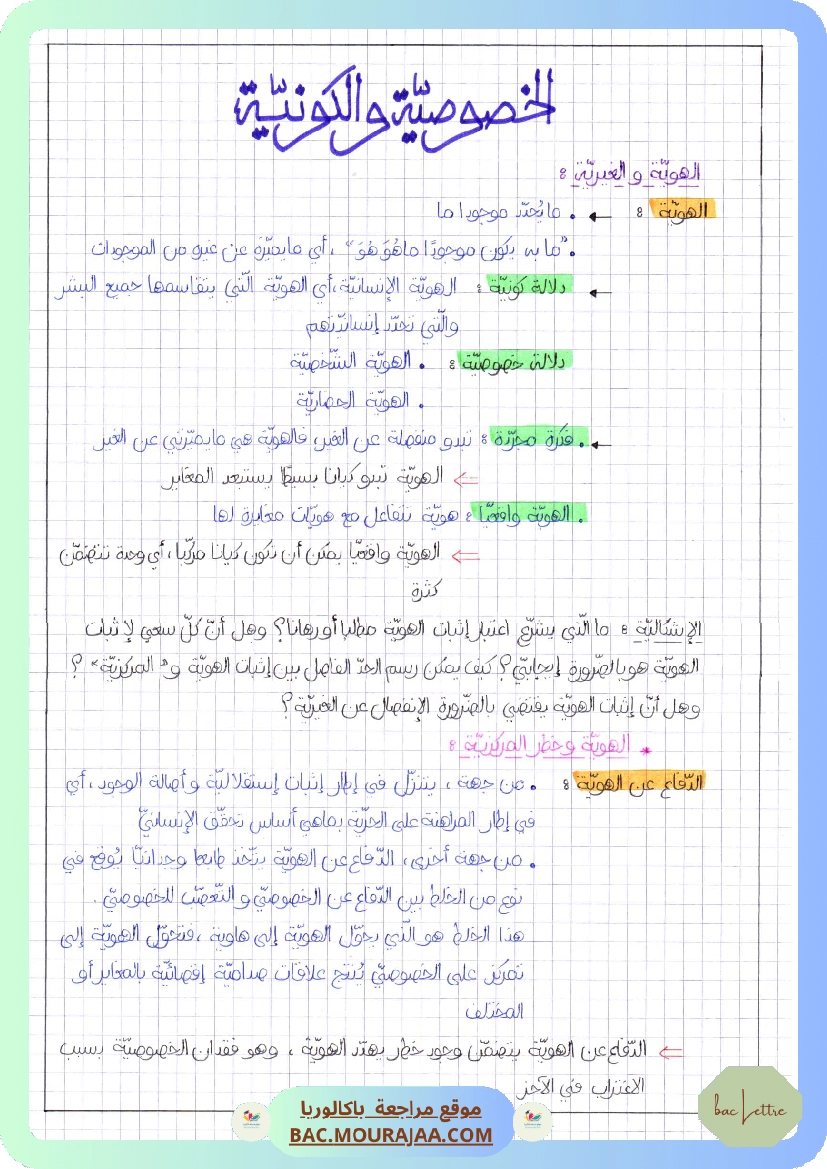 الخصوصيّة والكونيّة
الهويّة والغيريّة :
الهويّة : ← • ما يُحدّد موجودا ما
• "ما به يكون موجودًا ما هُوَ هُوَ"، أي ما يميّزه عن غيره من الموجودات
← دلالة كونيّة : الهويّة الإنسانيّة، أي الهويّة الّتي يتقاسمها جميع البشر
والّتي تحدّد إنسانيّتهم
دلالة خصوصيّة : • الهويّة الشّخصيّة
• الهويّة الحضاريّة
← • فكرة مجرّدة : تبدو منفصلة عن الغير، فالهويّة هي ما يميّزني عن الغير
⇐ الهويّة تبدو كيانا بسيطا يستبعد المغاير
• الهويّة واقعيّا : هويّة تتفاعل مع هويّات مغايرة لها
⇐ الهويّة واقعيّا يمكن أن تكون كيانا مركّبا، أي وحدة تتضمّن
كثرة
الإشكاليّة : ما الّذي يشرّع اعتبار إثبات الهويّة مطلبا أو رهانا؟ وهل أنّ كلّ سعي لإثبات
الهويّة هو بالضّرورة إيجابيّ؟ كيف يمكن رسم الحدّ الفاصل بين إثبات الهويّة و"المركزيّة"؟
وهل أنّ إثبات الهويّة يقتضي بالضّرورة الإنفصال عن الغيريّة؟
* الهويّة وخطر المركزيّة :
الدّفاع عن الهويّة : • من جهة، يتنزّل في إطار إثبات إستقلاليّة وأصالة الوجود، أي
في إطار المراهنة على الحرّيّة بما هي أساس تحقّق الإنسانيّ
• من جهة أخرى، الدّفاع عن الهويّة يتّخذ طابعا وجدانيّا يُوقع في
نوع من الخلط بين الدّفاع عن الخصوصيّ والتّعصّب للخصوصيّ.
هذا الخلط هو الّذي يحوّل الهويّة إلى هاوية، فتحوّل الهويّة إلى
تمركز على الخصوصيّ يُنتج علاقات صداميّة إقصائيّة بالمغاير أو
المختلف
⇐ الدّفاع عن الهويّة يتضمّن وجود خطر يهدّد الهويّة، وهو فقدان الخصوصيّة بسبب
الاغتراب في الآخر
موقع مراجعة باكالوريا
BAC.MOURAJAA.COM
bac Lettre